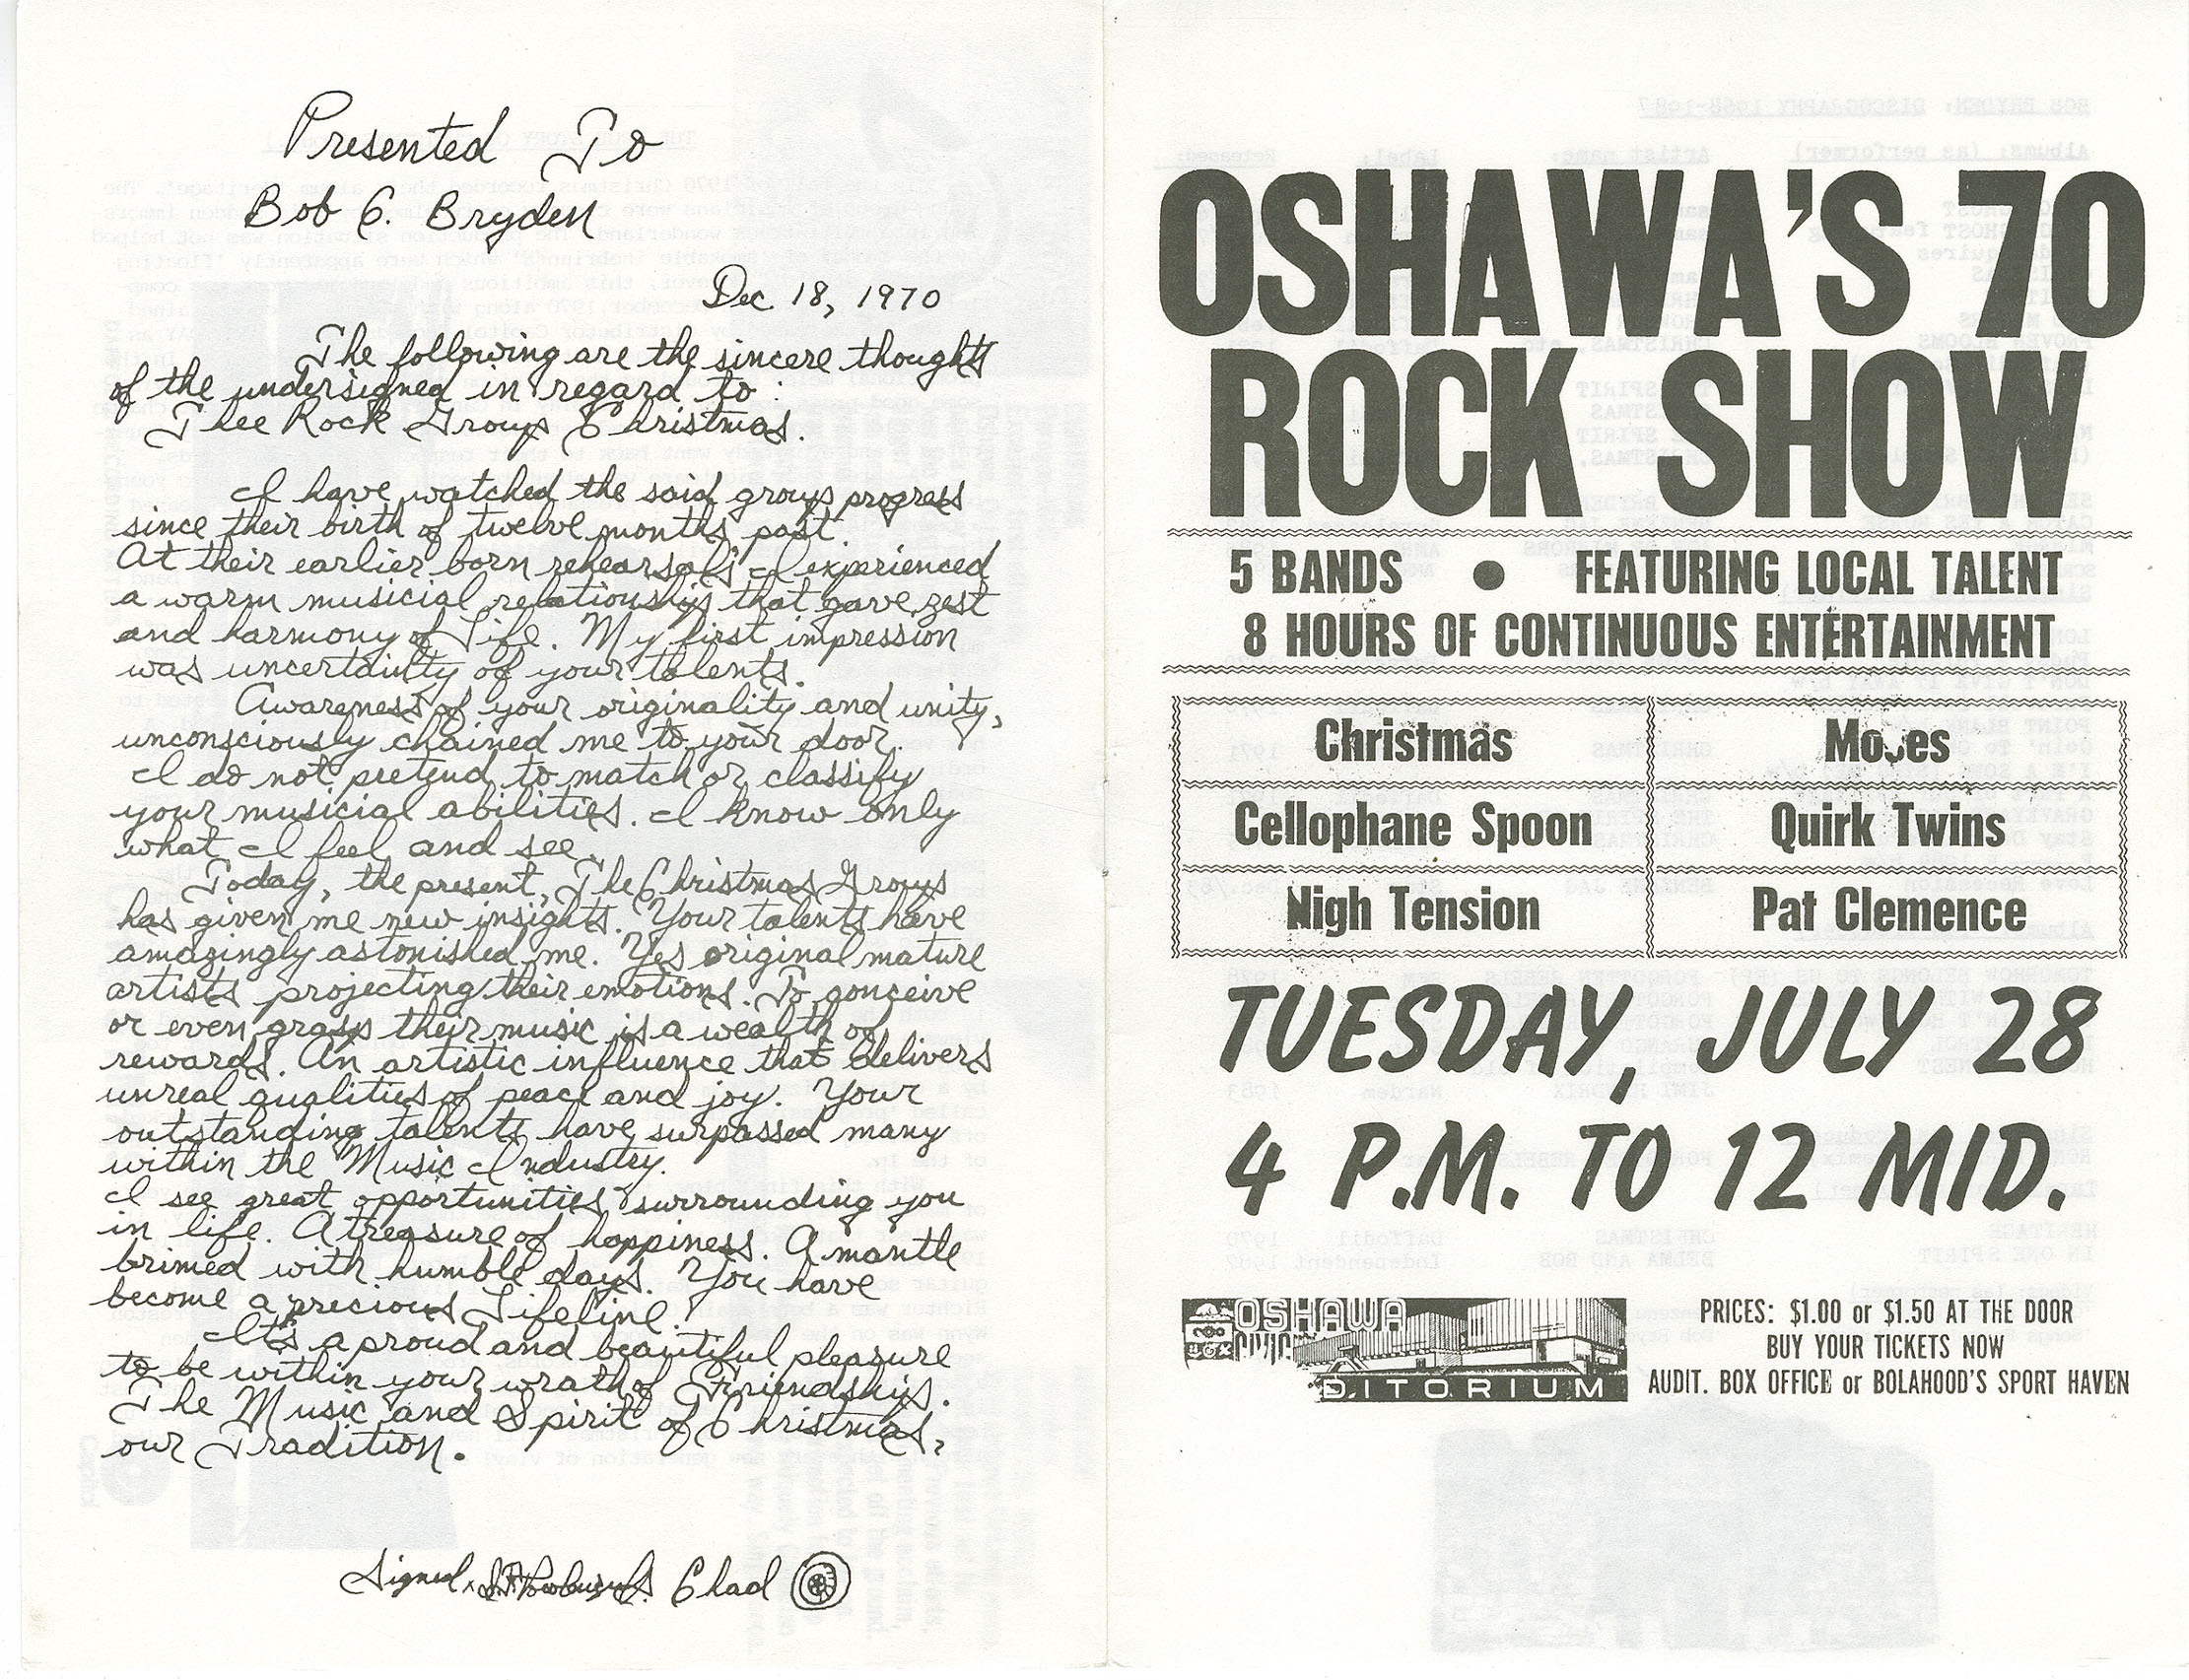 Presented To
Bob C. Bryden
Dec 18, 1970
The following are the sincere thoughts
of the undersigned in regard to :
Thee Rock Group Christmas.
I have watched the said groups progress
since their birth of twelve months past.
At their earlier born rehearsals I experienced
a warm musicial relationship that gave zest
and harmony of Life. My first impression
was uncertainty of your talents.
Awareness of your originality and unity,
unconsciously chained me to your door.
I do not pretend to match or classify
your musicial abilities. I know only
what I feel and see.
Today, the present, The Christmas Group
has given me new insights. Your talents have
amazingly astonished me. Yes original mature
artists projecting their emotions. To conceive
or even grasp their music is a wealth of
rewards. An artistic influence that delivers
unreal qualities of peace and joy. Your
outstanding talents have surpassed many
within the Music Industry.
I see great opportunities surrounding you
in life. A treasure of happiness. A mantle
brimed with humble days. You have
become a precious Lifeline.
It's a proud and beautiful pleasure
to be within your wrath of Friendship.
The Music and Spirit of Christmas,
our Tradition.
Signed Chad
OSHAWA'S 70
ROCK SHOW
5 BANDS • FEATURING LOCAL TALENT
8 HOURS OF CONTINUOUS ENTERTAINMENT
Christmas Moses
Cellophane Spoon Quirk Twins
Nigh Tension Pat Clemence
TUESDAY, JULY 28
4 P.M. TO 12 MID.
OSHAWA
CIVIC
DITORIUM
PRICES: $1.00 or $1.50 AT THE DOOR
BUY YOUR TICKETS NOW
AUDIT. BOX OFFICE or BOLAHOOD'S SPORT HAVEN